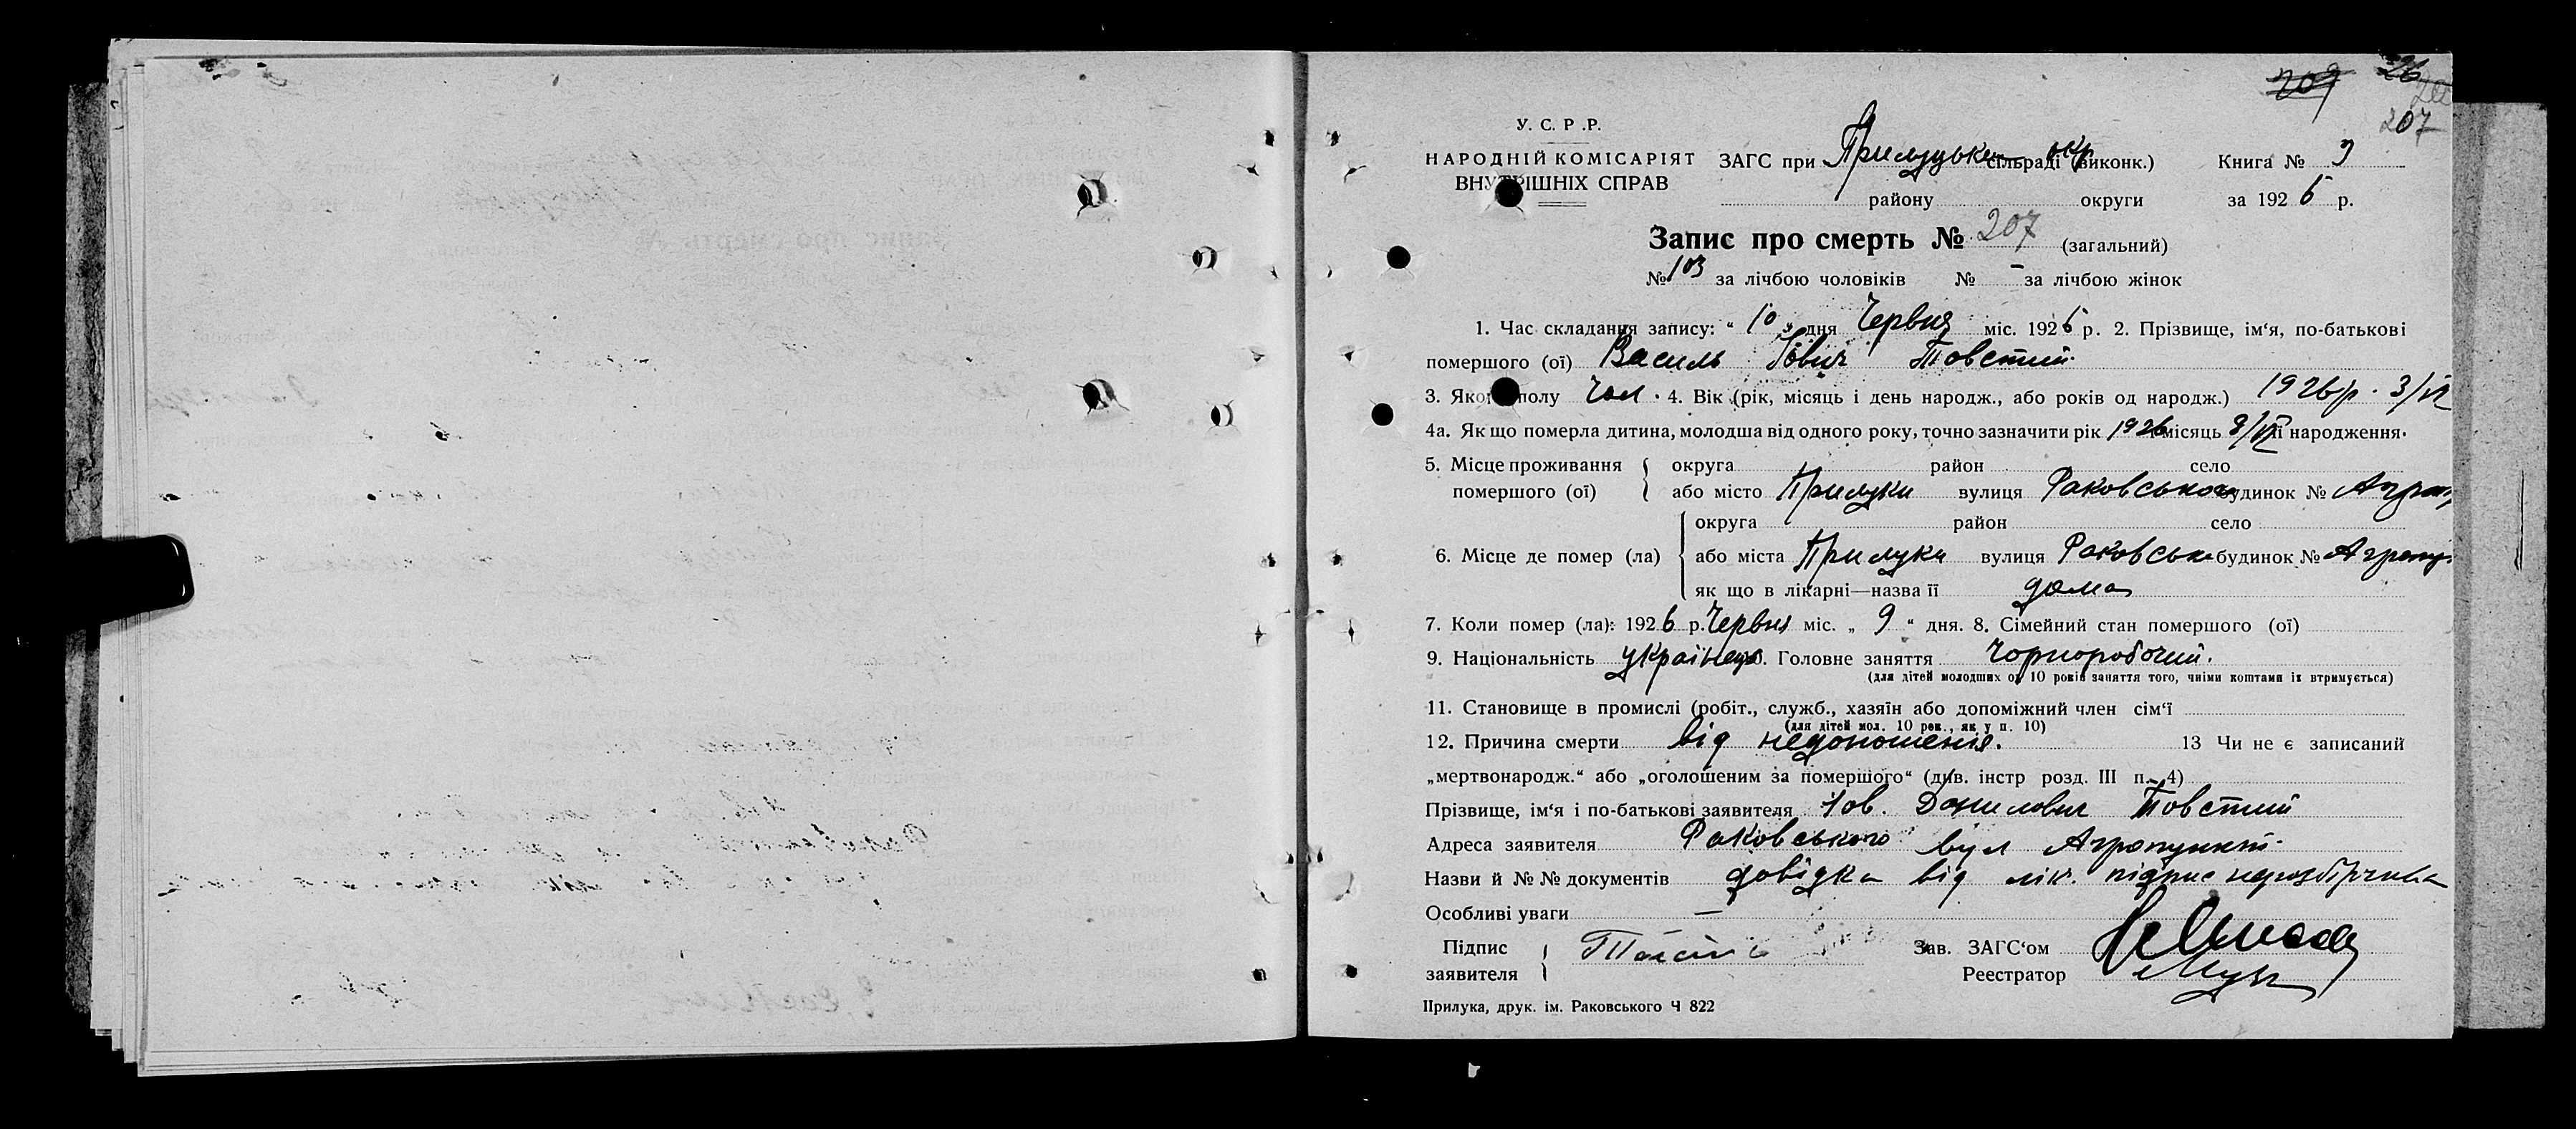 209 26
207
У. С. Р. Р.
НАРОДНІЙ КОМІСАРІЯТ ЗАГС при Прилуцьком сільраді окр (виконк.) Книга № 3
ВНУТРІШНІХ СПРАВ району округи за 1926 р.
Запис про смерть № 207 (загальний)
№ 103 за лічбою чоловіків № – за лічбою жінок
1. Час складання запису: „ 10 „ дня Червня міс. 1926 р. 2. Прізвище, ім‘я, по-батькові
помершого (ої) Василь Йович Товстий
3. Якого полу Чол. 4. Вік (рік, місяць і день народж., або років од народж.) 1926 р. 3/VI
4а. Як що померла дитина, молодша від одного року, точно зазначити рік 1926 місяць /VI її народження.
5. Місце проживання округа район село
помершого (ої) або місто Прилуки вулиця Раковського будинок № Агроп
округа район село
6. Місце де помер (ла) або міста Прилуки вулиця Раковськ будинок № Агропу
як що в лікарні—назва її дома
7. Коли помер (ла): 1926 р. Червня міс. „ 9 “ дня. 8. Сімейний стан помершого (ої)
9. Національність українець 10. Головне заняття Чорноробочий.
(для дітей молодших од 10 років заняття того, чиїми коштами їх втримується)
11. Становище в промислі (робіт., служб., хазяїн або допоміжний член сім‘ї
(для дітей мол. 10 рок., як у п. 10)
12. Причина смерти від недоношення. 13 Чи не є записаний
„мертвонародж.“ або „оголошеним за помершого“ (див. інстр розд. III п. 4)
Прізвище, ім‘я і по-батькові заявителя Йов. Данилович Товстий
Адреса заявителя Раковського вул Агропункт.
Назви й №№ документів довідка від лік. підпис нерозбірчива
Особливі уваги —
Підпис Зав. ЗАГС‘ом
заявителя Реестратор
Прилука, друк. ім. Раковського Ч 822